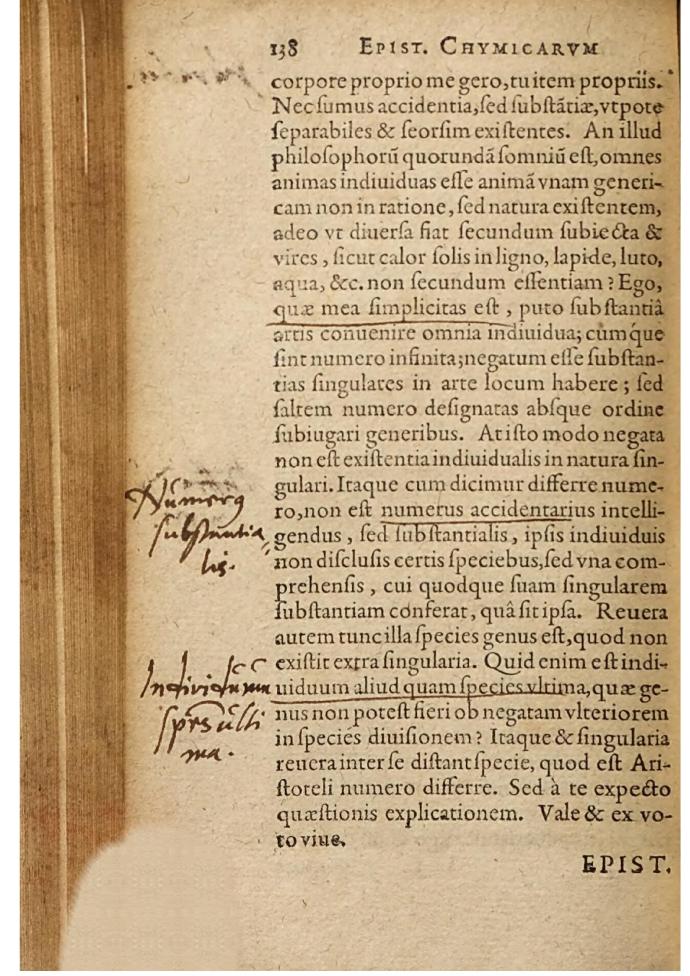 138 EPIST. CHYMICARVM
corpore proprio me gero, tu item propriis.
Nec ſumus accidentia, ſed ſubſtātiæ, vtpote
ſeparabiles & ſeorſim exiſtentes. An illud
philoſophorū quorundā ſomniū eſt, omnes
animas indiuiduas eſſe animā vnam generi-
cam non in ratione, ſed natura exiſtentem,
adeo vt diuerſa fiat ſecundum ſubiecta &
vires, ſicut calor ſolis in ligno, lapide, luto,
aqua, &c. non ſecundum eſſentiam? Ego,
quæ mea ſimplicitas eſt, puto ſubſtantiâ
artis conuenire omnia indiuidua; cùmque
ſint numero infinita; negatum eſſe ſubſtan-
tias ſingulares in arte locum habere; ſed
ſaltem numero deſignatas abſque ordine
ſubiugari generibus. At iſto modo negata
non eſt exiſtentia indiuidualis in natura ſin-
gulari. Itaque cum dicimur differre nume-
Numerꝰ
ro, non eſt numerus accidentarius intelli-
ſubſtantia
gendus, ſed ſubſtantialis, ipſis indiuiduis
lis.
non diſcluſis certis ſpeciebus, ſed vna com-
prehenſis, cui quodque ſuam ſingularem
ſubſtantiam conferat, quâ ſit ipſa. Reuera
autem tunc illa ſpecies genus eſt, quod non
exiſtit extra ſingularia. Quid enim eſt indi-
Individuum
uiduum aliud quam ſpecies vltima, quæ ge-
ulti
nus non poteſt fieri ob negatam vlteriorem
ma.
in ſpecies diuiſionem? Itaque & ſingularia
reuera inter ſe diſtant ſpecie, quod eſt Ari-
ſtoteli numero differre. Sed à te expecto
quæſtionis explicationem. Vale & ex vo-
to viue.
EPIST.